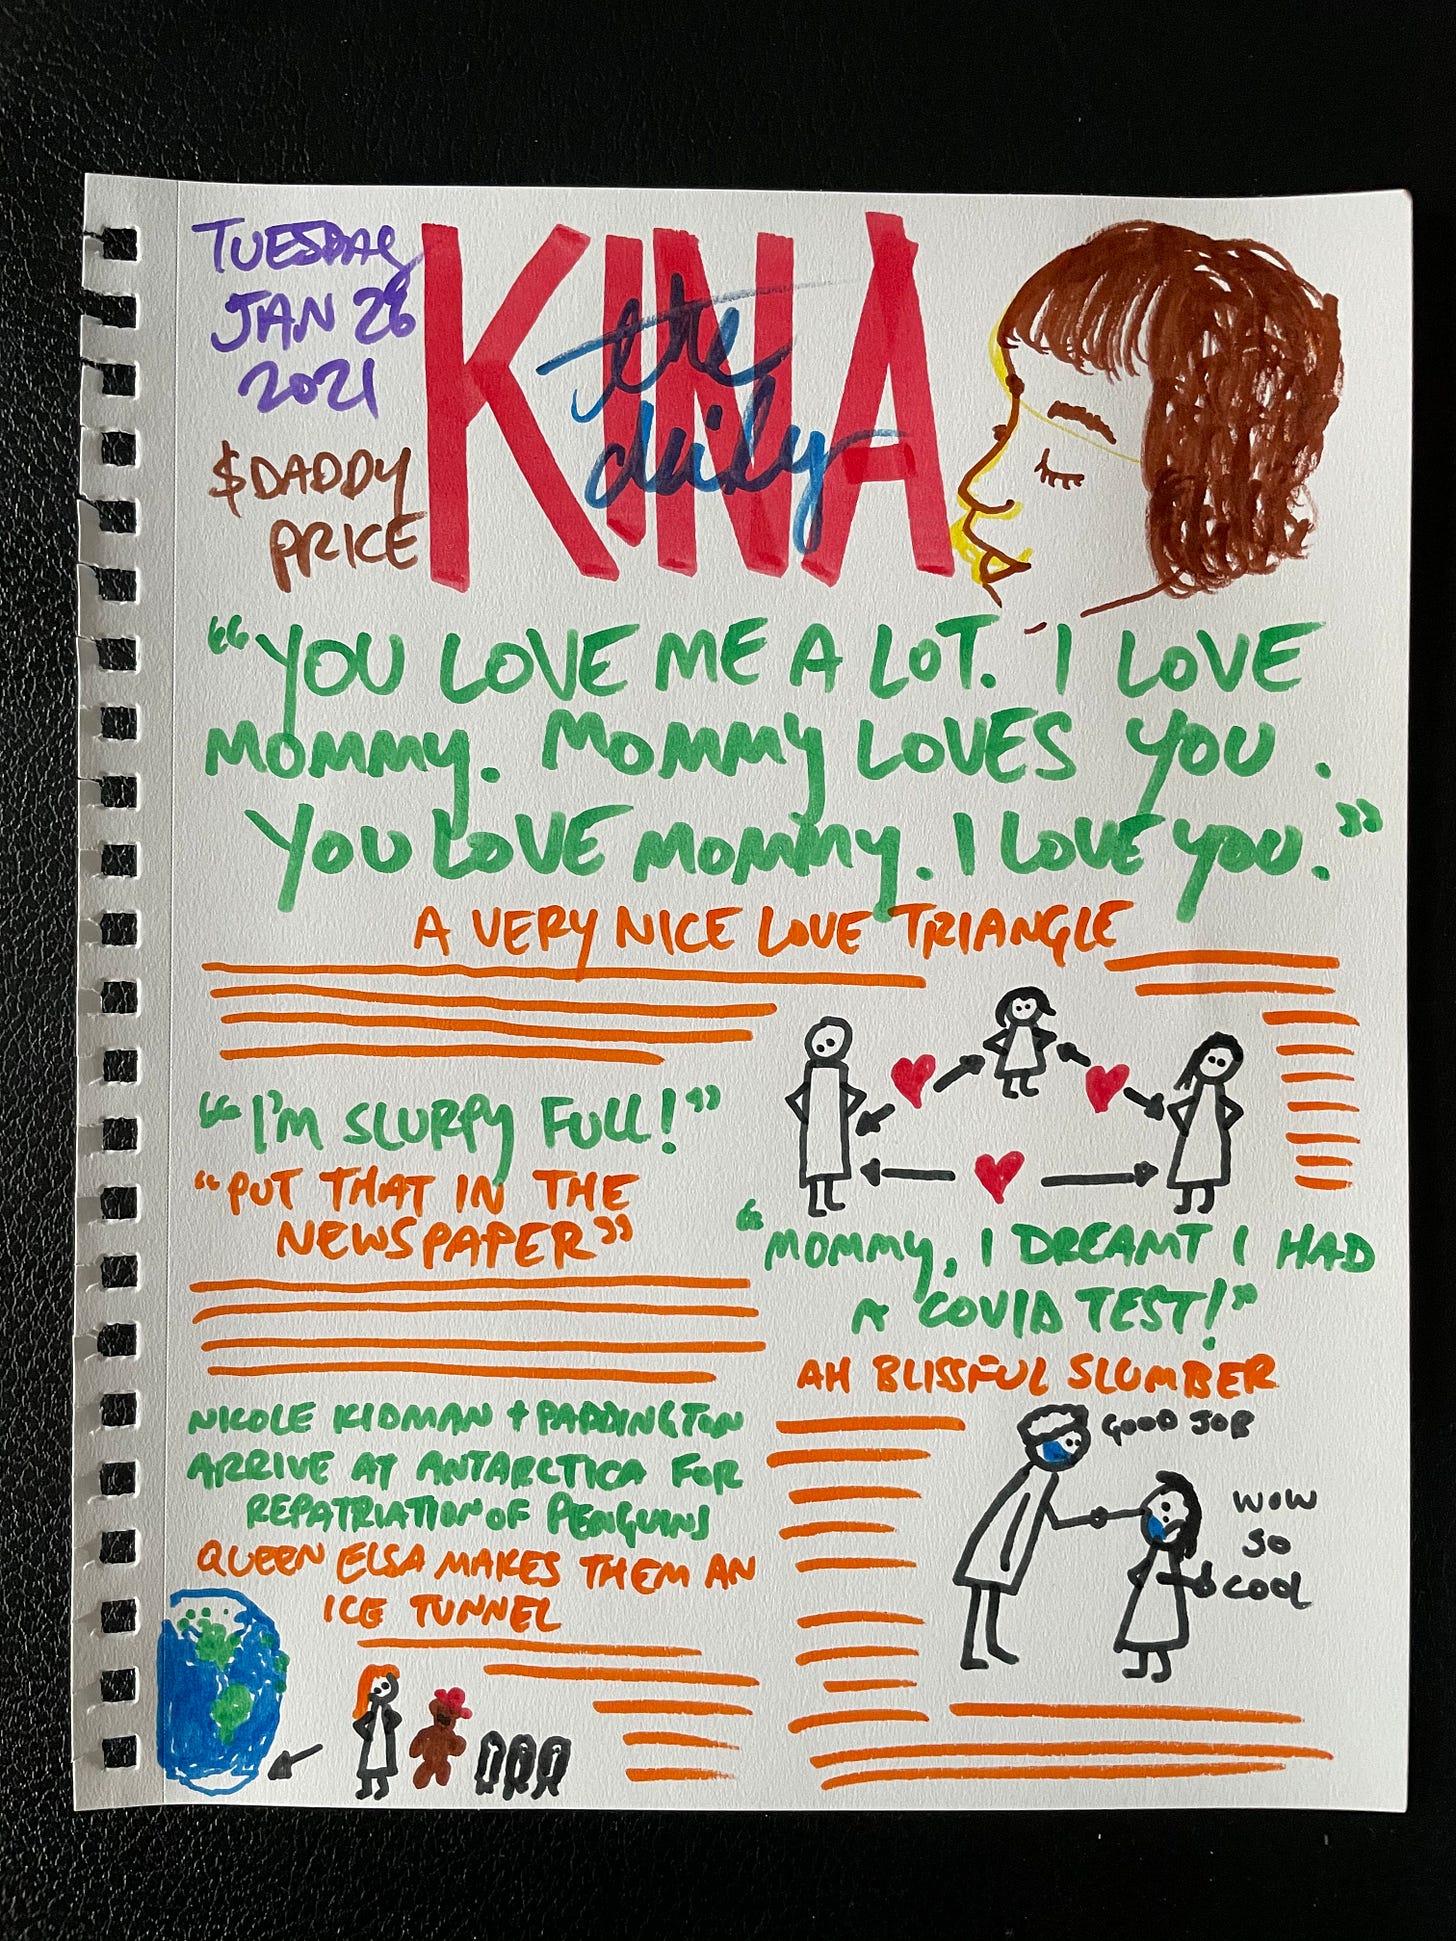 TUESDAY
JAN 26
2021
$DADDY
PRICE
KINA
the
daily
"YOU LOVE ME A LOT. I LOVE
MOMMY. MOMMY LOVES YOU.
YOU LOVE MOMMY. I LOVE YOU."
A VERY NICE LOVE TRIANGLE
"I'M SLURPY FULL!"
"PUT THAT IN THE
NEWSPAPER"
"MOMMY, I DREAMT I HAD
A COVID TEST!"
AH BLISSFUL SLUMBER
GOOD JOB
WOW
SO
COOL
NICOLE KIDMAN + PADDINGTON
ARRIVE AT ANTARCTICA FOR
REPATRIATION OF PENGUINS
QUEEN ELSA MAKES THEM AN
ICE TUNNEL